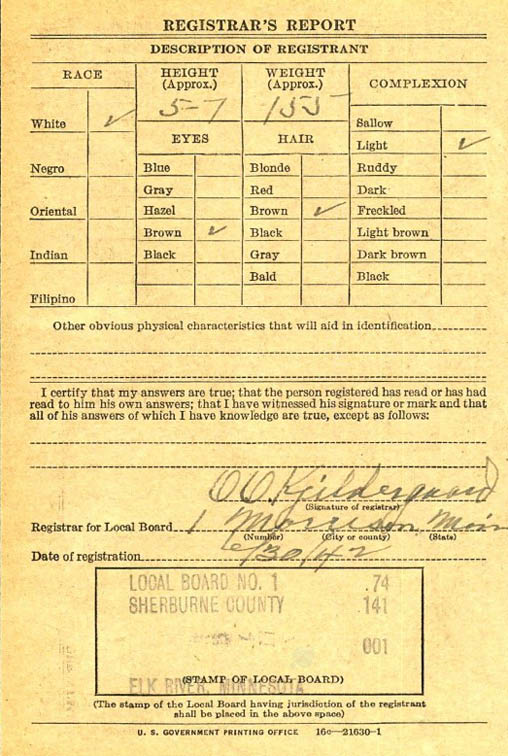 REGISTRAR'S REPORT
DESCRIPTION OF REGISTRANT
RACE
HEIGHT
(Approx.)
WEIGHT
(Approx.)
COMPLEXION
5-7
155
White ✓
Sallow
EYES
HAIR
Light ✓
Negro
Blue
Blonde
Ruddy
Gray
Red
Dark
Oriental
Hazel
Brown ✓
Freckled
Brown ✓
Black
Light brown
Indian
Black
Gray
Dark brown
Bald
Black
Filipino
Other obvious physical characteristics that will aid in identification
I certify that my answers are true; that the person registered has read or has had
read to him his own answers; that I have witnessed his signature or mark and that
all of his answers of which I have knowledge are true, except as follows:
O O Kjeldergaard
(Signature of registrar)
Registrar for Local Board 1 Morrison Minn
(Number) (City or county) (State)
Date of registration 6/30/42
LOCAL BOARD NO. 1 74
SHERBURNE COUNTY 141
001
(STAMP OF LOCAL BOARD)
ELK RIVER, MINNESOTA
(The stamp of the Local Board having jurisdiction of the registrant
shall be placed in the above space)
U. S. GOVERNMENT PRINTING OFFICE 16c—21630-1